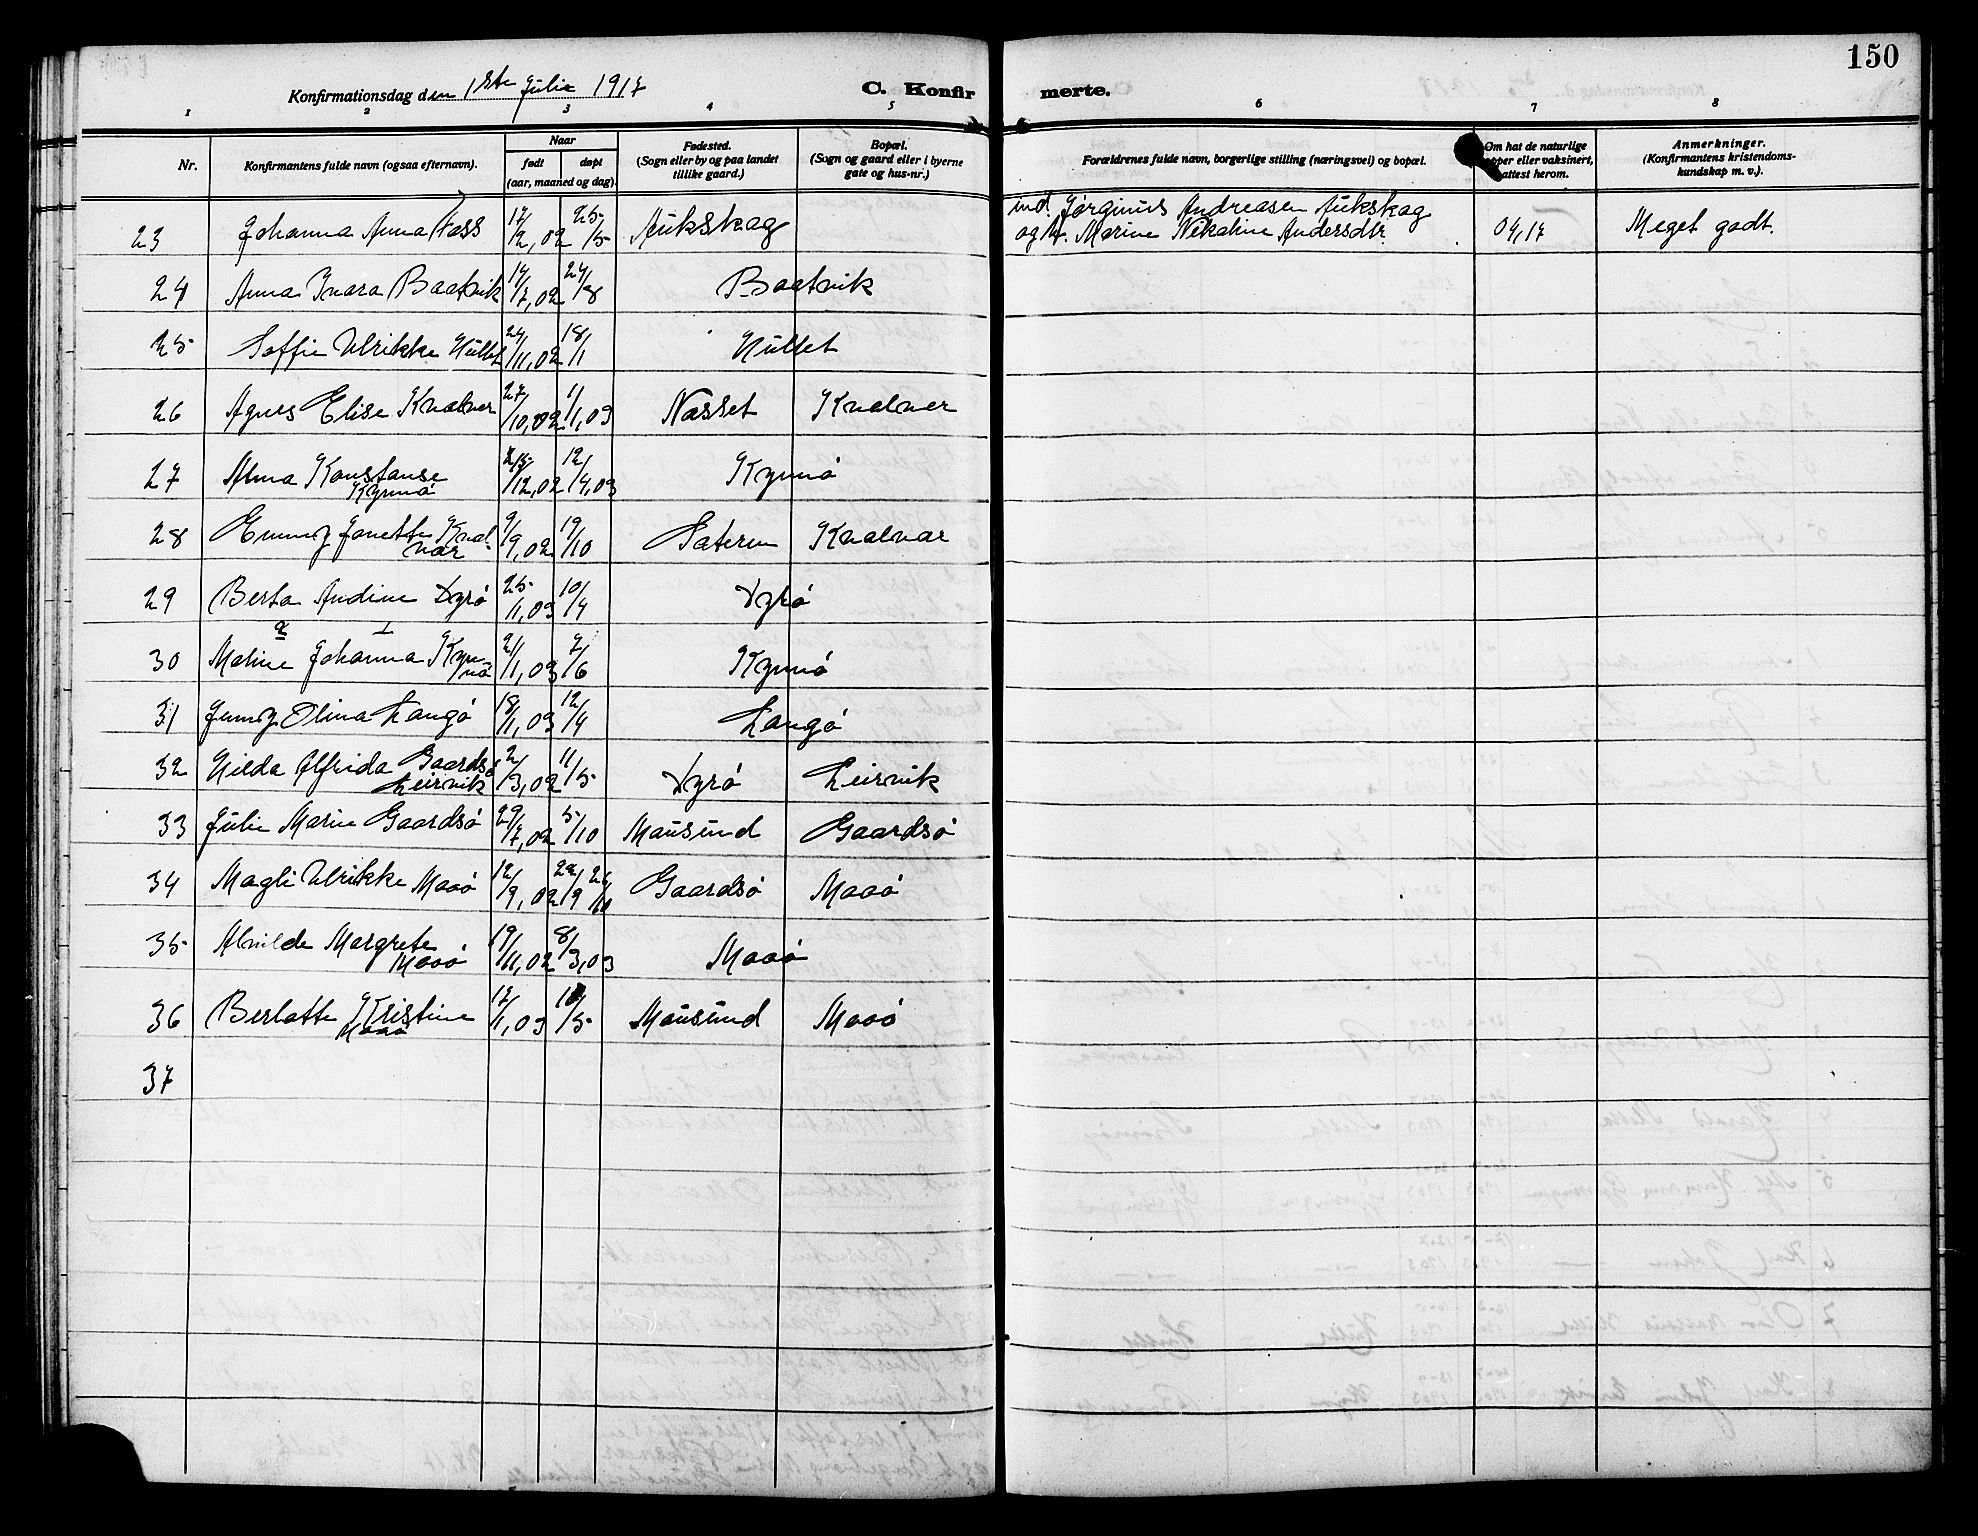 150
Konfirmationsdag den 1ste Julie 1917
C. Konfirmerte.
1 2 3 4 5 6 7 8
Nr.
Konfirmantens fulde navn (ogsaa efternavn).
Naar
født
døpt
(aar, maaned og dag)
Fødested.
(Sogn eller by og paa landet
tillike gaard.)
Bopæl.
(Sogn og gaard eller i byerne
gate og hus-nr.)
Forældrenes fulde navn, borgerlige stilling (næringsvei) og bopæl.
Om hat de naturlige
kopper eller vaksinert,
attest herom.
Anmerkninger.
(Konfirmantens kristendoms-
kundskap m. v.).
23 Johanna Anna 17/12,02 25/5 Aukskag ind. Jørginus Andreasen Aukskag
og h. Marine Nekoline Andersdtr. 04,17 Meget godt.
24 Anna Ivara Baatvik 14/7,02 24/8 Baatvik
25 Soffie Ulrikke Hullet 24/11,02 18/1 Hullet
26 Agnes Elise Kvalvær 27/10,02 1/1,03 Næsset Kvalvær
27 Alma Konstanse
Kynnø 12/12,02 12/4,03 Kynnø
28 Emmy Janette Kval-
vær 9/9,02 19/10 Sæteren Kvalvær
29 Berta Andine Dyrø 25/1,03 10/4 Dyrø
30 Maline Johanna Kyn-
nø 21/1,03 7/6 Kynnø
31 Jenny Olina Langø 18/1,03 12/4 Langø
32 Hilda Alfrida Gaardsø
Leirvik 2/3,02 11/5 Dyrø Leirvik
33 Julie Marie Gaardsø 29/7,02 5/10 Mausund Gaardsø
34 Magli Ulrikke Maaø 12/9,02 26/10 Gaardsø Maaø
35 Alvilde Margrete
Maaø 19/11,02 8/3,03 Maaø
36 Berlotte Kristine
Maaø 17/1,03 /5 Mausund Maaø
37